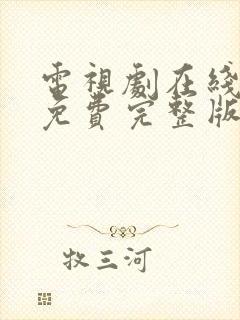 電視劇在綫
免費完整版
牧三河